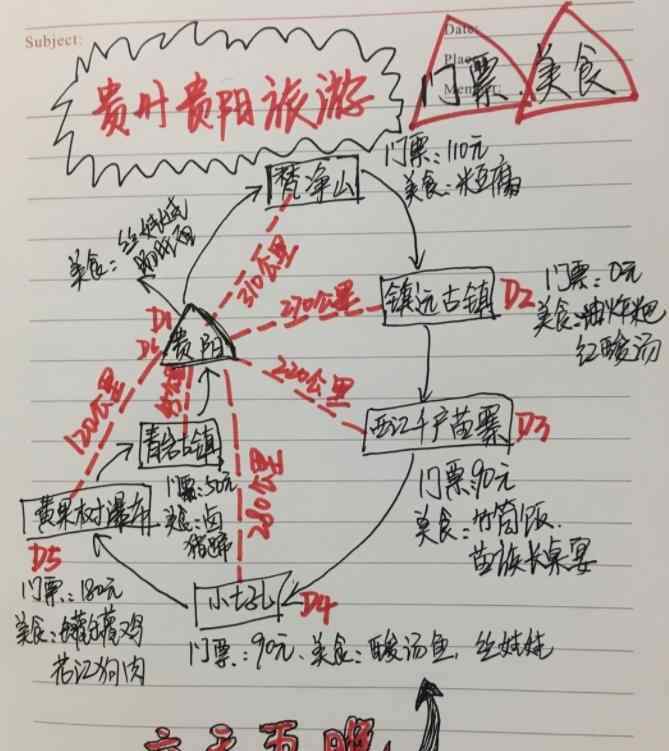 Subject:
Date:
贵州贵阳旅游
门票.美食
门票:110元
美食:米豆腐
梵净山
美食:丝娃娃
310公里
镇远古镇
D2
门票:0元
美食:油炸粑
红酸汤
270公里
D1
D6
贵阳
220公里
西江千户苗寨
D3
门票:90元
美食:竹筒饭.
苗族长桌宴
120公里
青岩古镇
门票:50元
美食:卤
猪蹄
280公里
黄果树瀑布
D5
门票:180元
美食:罐罐鸡
花江狗肉
小七孔
D4
门票:90元、美食:酸汤鱼,丝娃娃
六天五晚